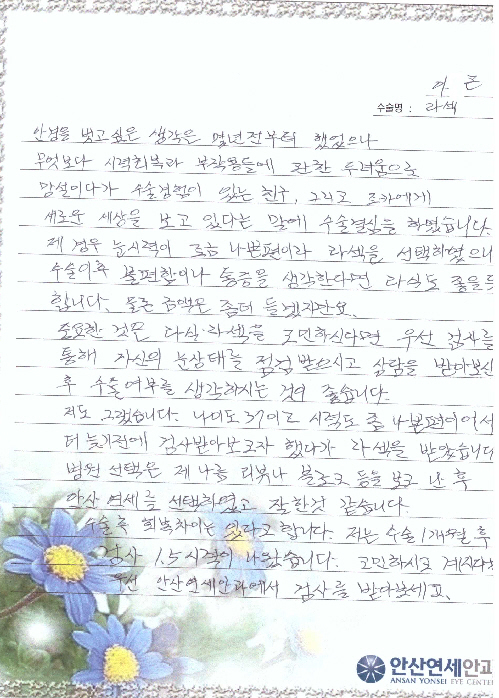 수술명 : 라섹
안경을 벗고 싶은 생각은 몇년전부터 했었으나
무엇보다 시력회복과 부작용들에 관한 두려움으로
망설이다가 수술경험이 있는 친구, 그리고 조카에게
새로운 세상을 보고 있다는 말에 수술결심을 하였습니다.
제 경우 눈시력이 조금 나쁜편이라 라섹을 선택하였으나
수술이후 불편함이나 통증을 생각한다면 라식도 좋을듯
합니다. 물론 금액은 좀더 들겠지만요.
중요한 것은 라식·라섹을 고민하신다면 우선 검사를
통해 자신의 눈상태를 점검받으시고 상담을 받아보신
후 수술여부를 생각하시는 것이 좋습니다.
저도 그랬습니다. 나이도 37이고 시력도 좀 나쁜편이어서
더 늦기전에 검사받아보고자 했다가 라섹을 받았습니다
병원 선택은 제 나름 리뷰나 블로그 등을 보고 난 후
안산 연세를 선택하였고 잘한것 같습니다.
수술 후 회복차이는 있다고 합니다. 저는 수술 1개월 후
검사 1.5 시력이 나왔습니다. 고민하시고 계시다면
우선 안산연세안과에서 검사를 받아보세요.
안산연세안과
ANSAN YONSEI EYE CENTER